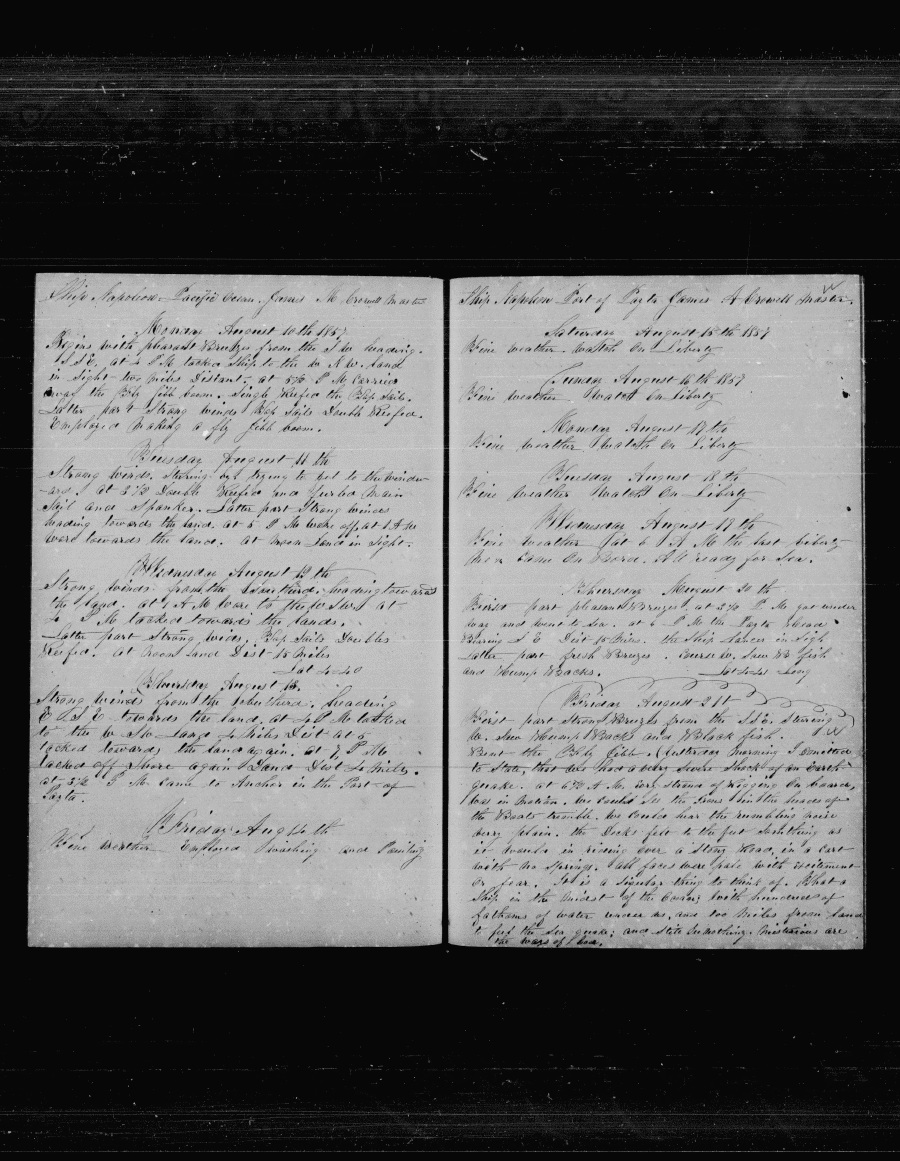 Ship Napoleon Pacific Ocean James M Crowell Master
Monday August 10th 1857
Begins with pleasant Breezes from the S W heading
S S E. at 4 P M tacked Ship to the W N W. Land
in Sight two miles Distant, at 5 1/2 P M Carried
away the Fly Jibb boom. Single Reefed the Top Sails.
Latter part Strong winds Top Sails Double Reefed.
Employed Making a fly Jibb boom.
Tuesday August 11th
Strong winds. Steering by trying to Get to the windw
ard. at 3 1/2 Double Reefed and furled Main
Sail and Spanker. Latter part Strong winds
heading towards the land. at 5 P M Wore off, at 1 A M
wore towards the land. at noon Land in Sight.
Wednesday August 12th
Strong winds from the Southerd. heading towards
the land. at 1 A M Wore to the W S W at
4 P M tacked towards the lands.
Latter part Strong winds. Top Sails Doubles
Reefed. at Noon Land Dist 15 Miles
Lat 4-40
Thursday August 13.
Strong winds from the Southerd. heading
E S E towards the land. at 4 P M tacked
to the W S W Land 4 Miles Dist at 6
tacked towards the land again. at 7 P M
tacked off Shore again Land Dist 4 Miles.
at 3 1/2 P M. came to Anchor in the Port of
Payta.
Friday Aug 14th
Fine weather Employed washing and Painting
Ship Napoleon Port of Payta James A Crowell Master.
Saturday August 15th 1857
Fine weather. Watch On Liberty
Sunday August 16th 1857
Fine weather Watch On Liberty
Monday August 17th
Fine weather Watch On Liberty
Tuesday August 18th
Fine weather Watch On Liberty
Wednesday August 19th
Fine weather at 6 A M the last liberty
Men Came On Bord. All ready for Sea.
Thursday August 20th
First part pleasant Breezes. at 2 1/2 P M got under
way and went to Sea. at 6 P M the Payta Head
Bearing S E Dist 15 Miles. the Ship Lancer in Sigh
Latter part fresh Breezes. Course W. Saw B fish
and Hump Backs. Lat 4-44 Long
Friday August 21st
First part Strong Breezes from the S S E. Steering
W. Saw Hump Backs and Black fish.
Bent the Fly Jibb. Yesterday morning I omitted
to State, that we had a very Severe Shock of an Earth
quake. at 6 1/2 A M. every strand of rigging On board,
was in Motion. We could See the Irons in the heads of
the Boats tremble. we could hear the rumbling noise
very plain. the Decks felt to the feet Something as
it would in riding over a Stony Road, in a cart
with No Springs. all faces were pale with excitement
or fear. It is a Singular thing to think of. That a
Ship in the midst of the Ocean; with hundreds of
fathoms of water under us, and 100 Miles from land
to feel the Sea quake; and State Something. Misterious are
the ways of God.